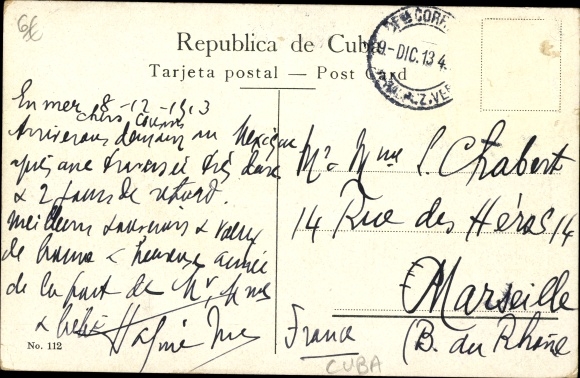 6€
Republica de Cuba
Tarjeta postal — Post Card
9-DIC.13 4
En mer 8-12-1913
chers cousins
Arriverons demain au Mexique
après une traversée très dure
& 2 jours de retard.
Meilleurs souvenirs & vœux
de bonne & heureuse année
de la part de Mr, Mme
&
No. 112
Mr Mme L. Chabert
14 Rue des Héros 14
Marseille
France
(B. du Rhône
CUBA